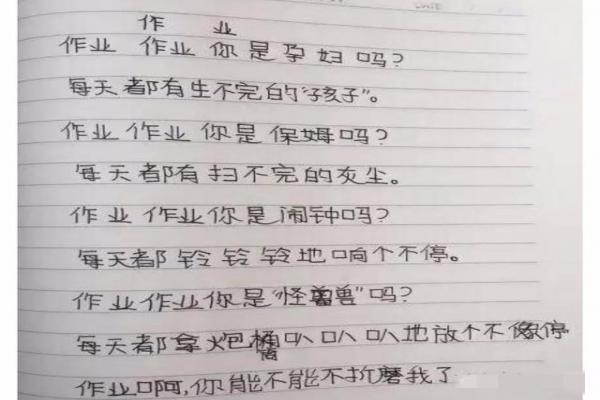 作 业
作业 作业你是孕妇吗?
每天都有生不完的“孩子”。
作业作业你是保姆吗?
每天都有扫不完的灰尘。
作业作业你是闹钟吗?
每天都铃铃铃地响个不停。
作业作业你是“怪兽”吗?
每天都拿炮桶叭叭叭地放个不停
作业啊,你能不能不折磨我了